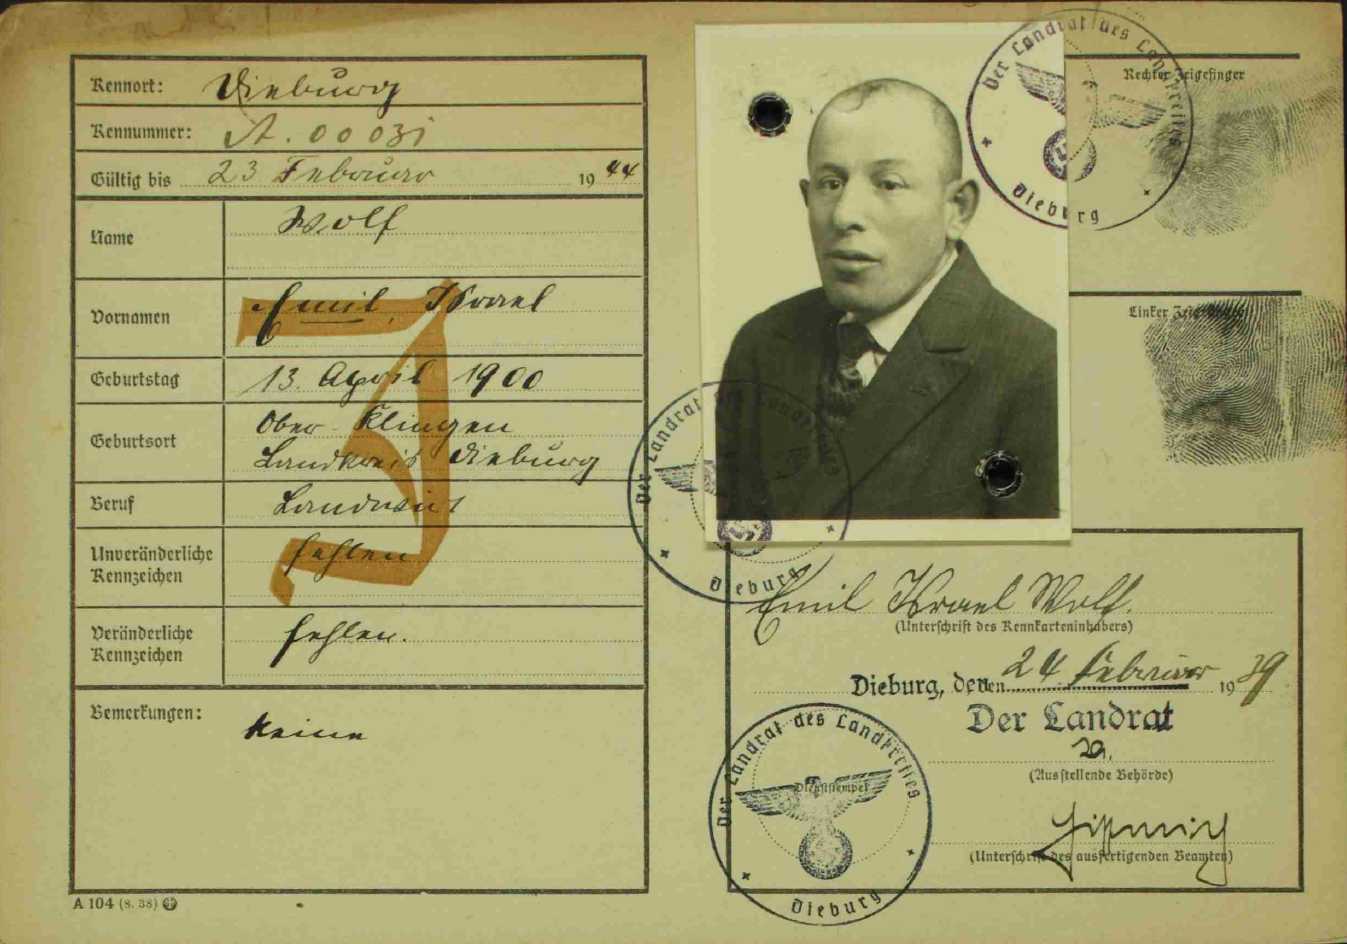 Kennort: Dieburg
Kennummer: A. 00031
Gültig bis 23 Februar 1944
Name Wolf
Vornamen Emil, Israel
Geburtstag 13. April 1900
Geburtsort Ober-Klingen
Landkreis Dieburg
Beruf Landwirt
Unveränderliche
Kennzeichen fehlen
Veränderliche
Kennzeichen fehlen.
Bemerkungen: keine
A 104 (8. 38)
J
Der Landrat des Landkreises
Dieburg
Rechter Zeigefinger
Linker Zeigefinger
Der Landrat des Landkreises
Dieburg
Emil Israel Wolf.
(Unterschrift des Kennkarteninhabers)
Dieburg, den 24 Februar 1939
Der Landrat
(Ausstellende Behörde)
Der Landrat des Landkreises
Dienststempel
Dieburg
(Unterschrift des ausfertigenden Beamten)